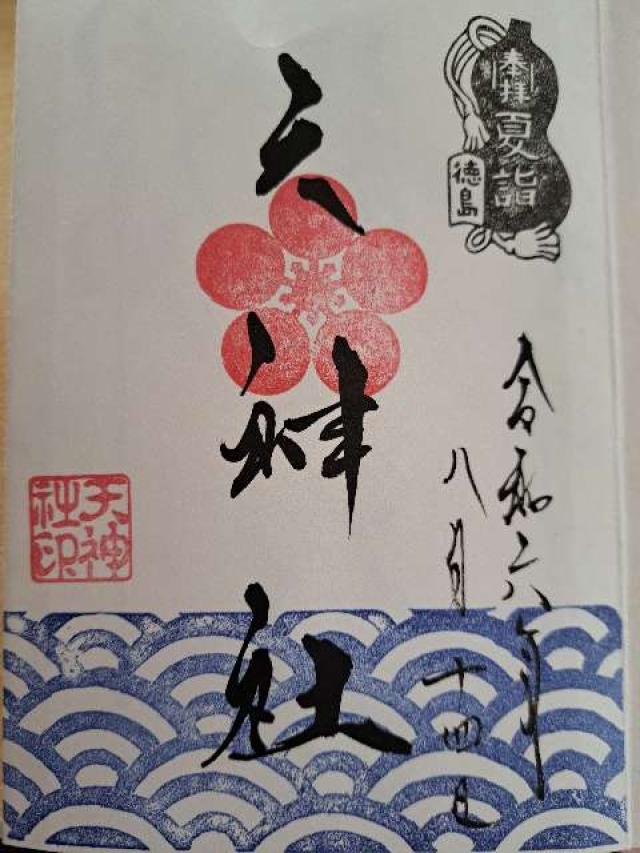 奉拝
夏詣
徳島
令和六年
八月十四日
天神社
天神社印